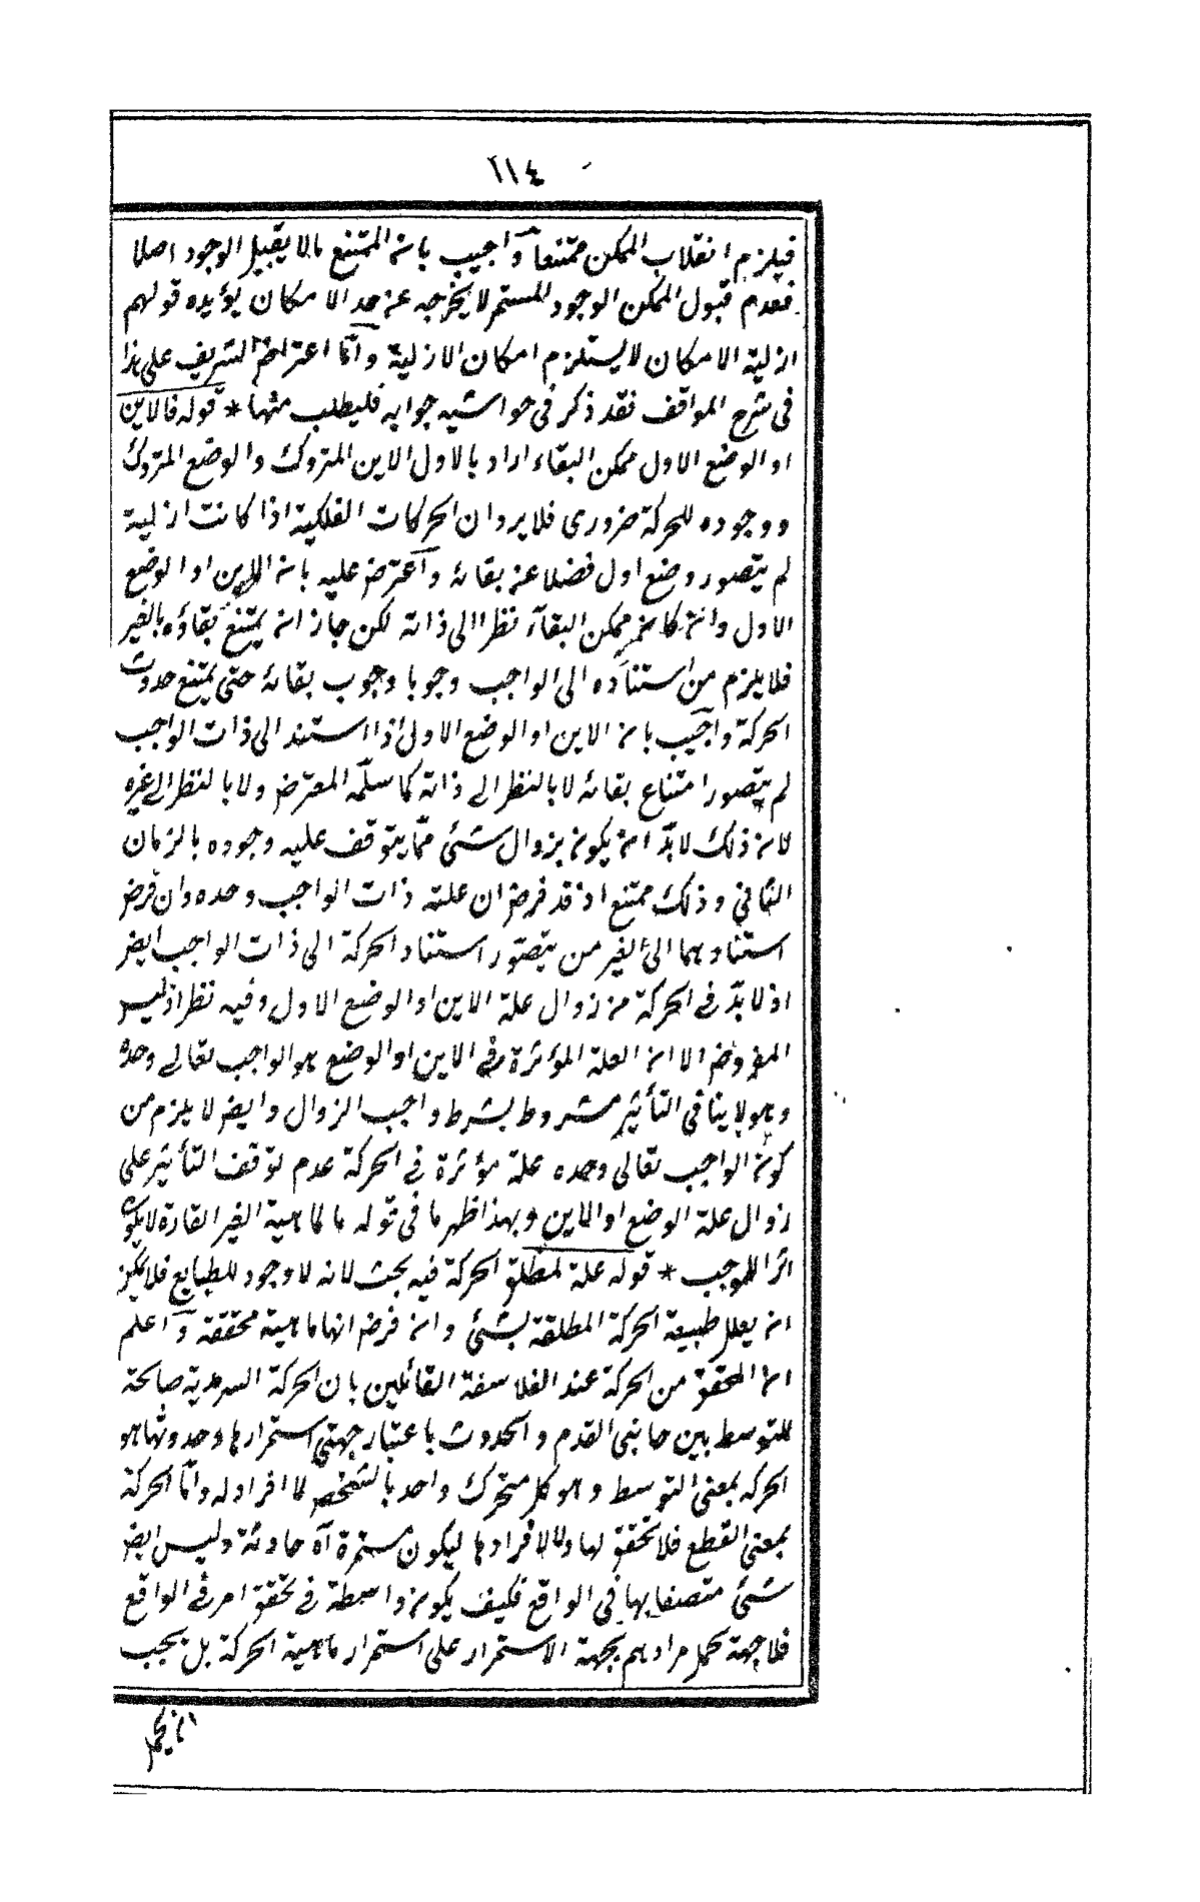 ١١٤
فيلزم انقلاب الممكن ممتنعا واجيب بان الممتنع مالا يقبل الوجود اصلا
فعدم قبول الممكن الوجود المستمر لا يخرجه عن حد الامكان يؤيده قولهم
ازلية الامكان لا يستلزم امكان الازلية وأما اعتراض الشريف على هذا
فى شرح المواقف فقد ذكر فى حواشيه جوابه فليطلب منها * قوله فالاين
او الوضع الاول ممكن البقاء اراد بالاول الاين المتروك والوضع المتروك
ووجوده للحركة ضرورى فلا يرد ان الحركات الفلكية اذا كانت ازلية
لم يتصور وضع اول فضلا عن بقائه واعترض عليه بان الاين او الوضع
الاول وان كان ممكن البقآء نظرا الى ذاته لكن جاز ان يمتنع بقاؤه بالغير
فلا يلزم من استناده الى الواجب وجوبا وجوب بقائه حتى يمتنع حدوث
الحركة واجيب بان الاين او الوضع الاول اذا استند الى ذات الواجب
لم يتصور امتناع بقائه لا بالنظر الى ذاته كما سلمه المعترض ولا بالنظر الى غيره
لان ذلك لابد ان يكون بزوال شئ مما يتوقف عليه وجوده بالزمان
الثانى وذلك ممتنع اذ قد فرض ان علته ذات الواجب وحده وان فرض
استنادهما الى الغير من يتصور استناد الحركة الى ذات الواجب ايض
اذ لابد فى الحركة من زوال علة الاين او الوضع الاول وفيه نظر اذ ليس
المفروض الا ان العلة المؤثرة فى الاين او الوضع هو الواجب تعالى وحده
وهو لا ينافى التأثير مشروط بشرط واجب الزوال وايض لا يلزم من
كون الواجب تعالى وحده علة مؤثرة فى الحركة عدم توقف التأثير على
زوال علة الوضع او الاين وبهذا ظهر ما فى قوله مالماهية الغير القارة لا يكون
اثرا للموجب * قوله علة لمطلق الحركة فيه بحث لانه لا وجود للطبايع فلا يمكن
ان يعلل طبيعة الحركة المطلقة بشئ وان فرض انها ماهية محققة واعلم
ان المحقق من الحركة عند الفلاسفة القائلين بان الحركة السرمدية صالحة
للتوسط بين جانبى القدم والحدوث باعتبار جهتى استمرارها وحدوثها هو
الحركه بمعنى التوسط وهو كل متحرك واحد بالشخص لا افراد له واما الحركة
بمعنى القطع فلا تحقق لها ولا لافرادها ليكون مستمرة آه حادثة وليس ايض
شئ متصفا بها فى الواقع فكيف يكون واسطة فى تحقق امر فى الواقع
فلا جهة لحمل مرادهم بجهة الاستمرار على استمرار ماهية الحركة بل يجب
ان يحمل